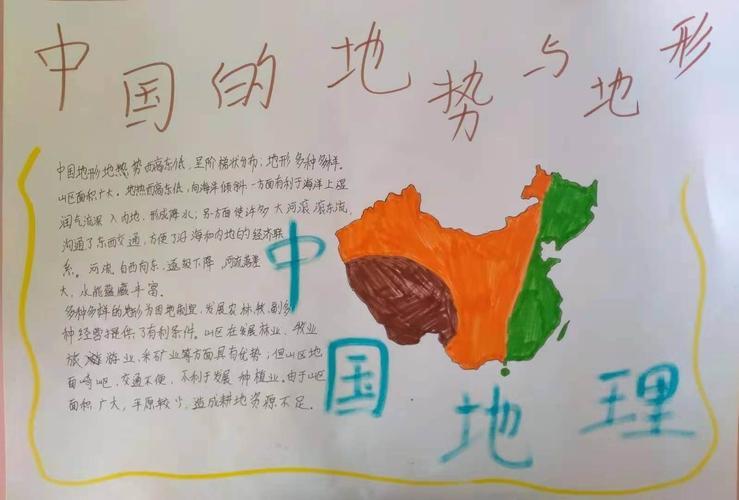 中国的地势与地形
中国地形地势西高东低，呈阶梯状分布；地形多种多样。
山区面积广大。地势西高东低，向海洋倾斜一方面有利于海洋上湿
润气流深入内地，形成降水；另一方面使许多大河滚滚东流，
沟通了东西交通，方便了沿海和内地的经济联
系。河流自西向东，逐级下降，河流落差
大，水能蕴藏丰富。
多种多样的地形为因地制宜，发展农林牧副多
种经营提供了有利条件。山区在发展林业、牧业
旅游业、采矿业等方面具有优势；但山区地
面崎岖，交通不便，不利于发展种植业。由于山区
面积广大，平原较少，造成耕地资源不足。
中国地理